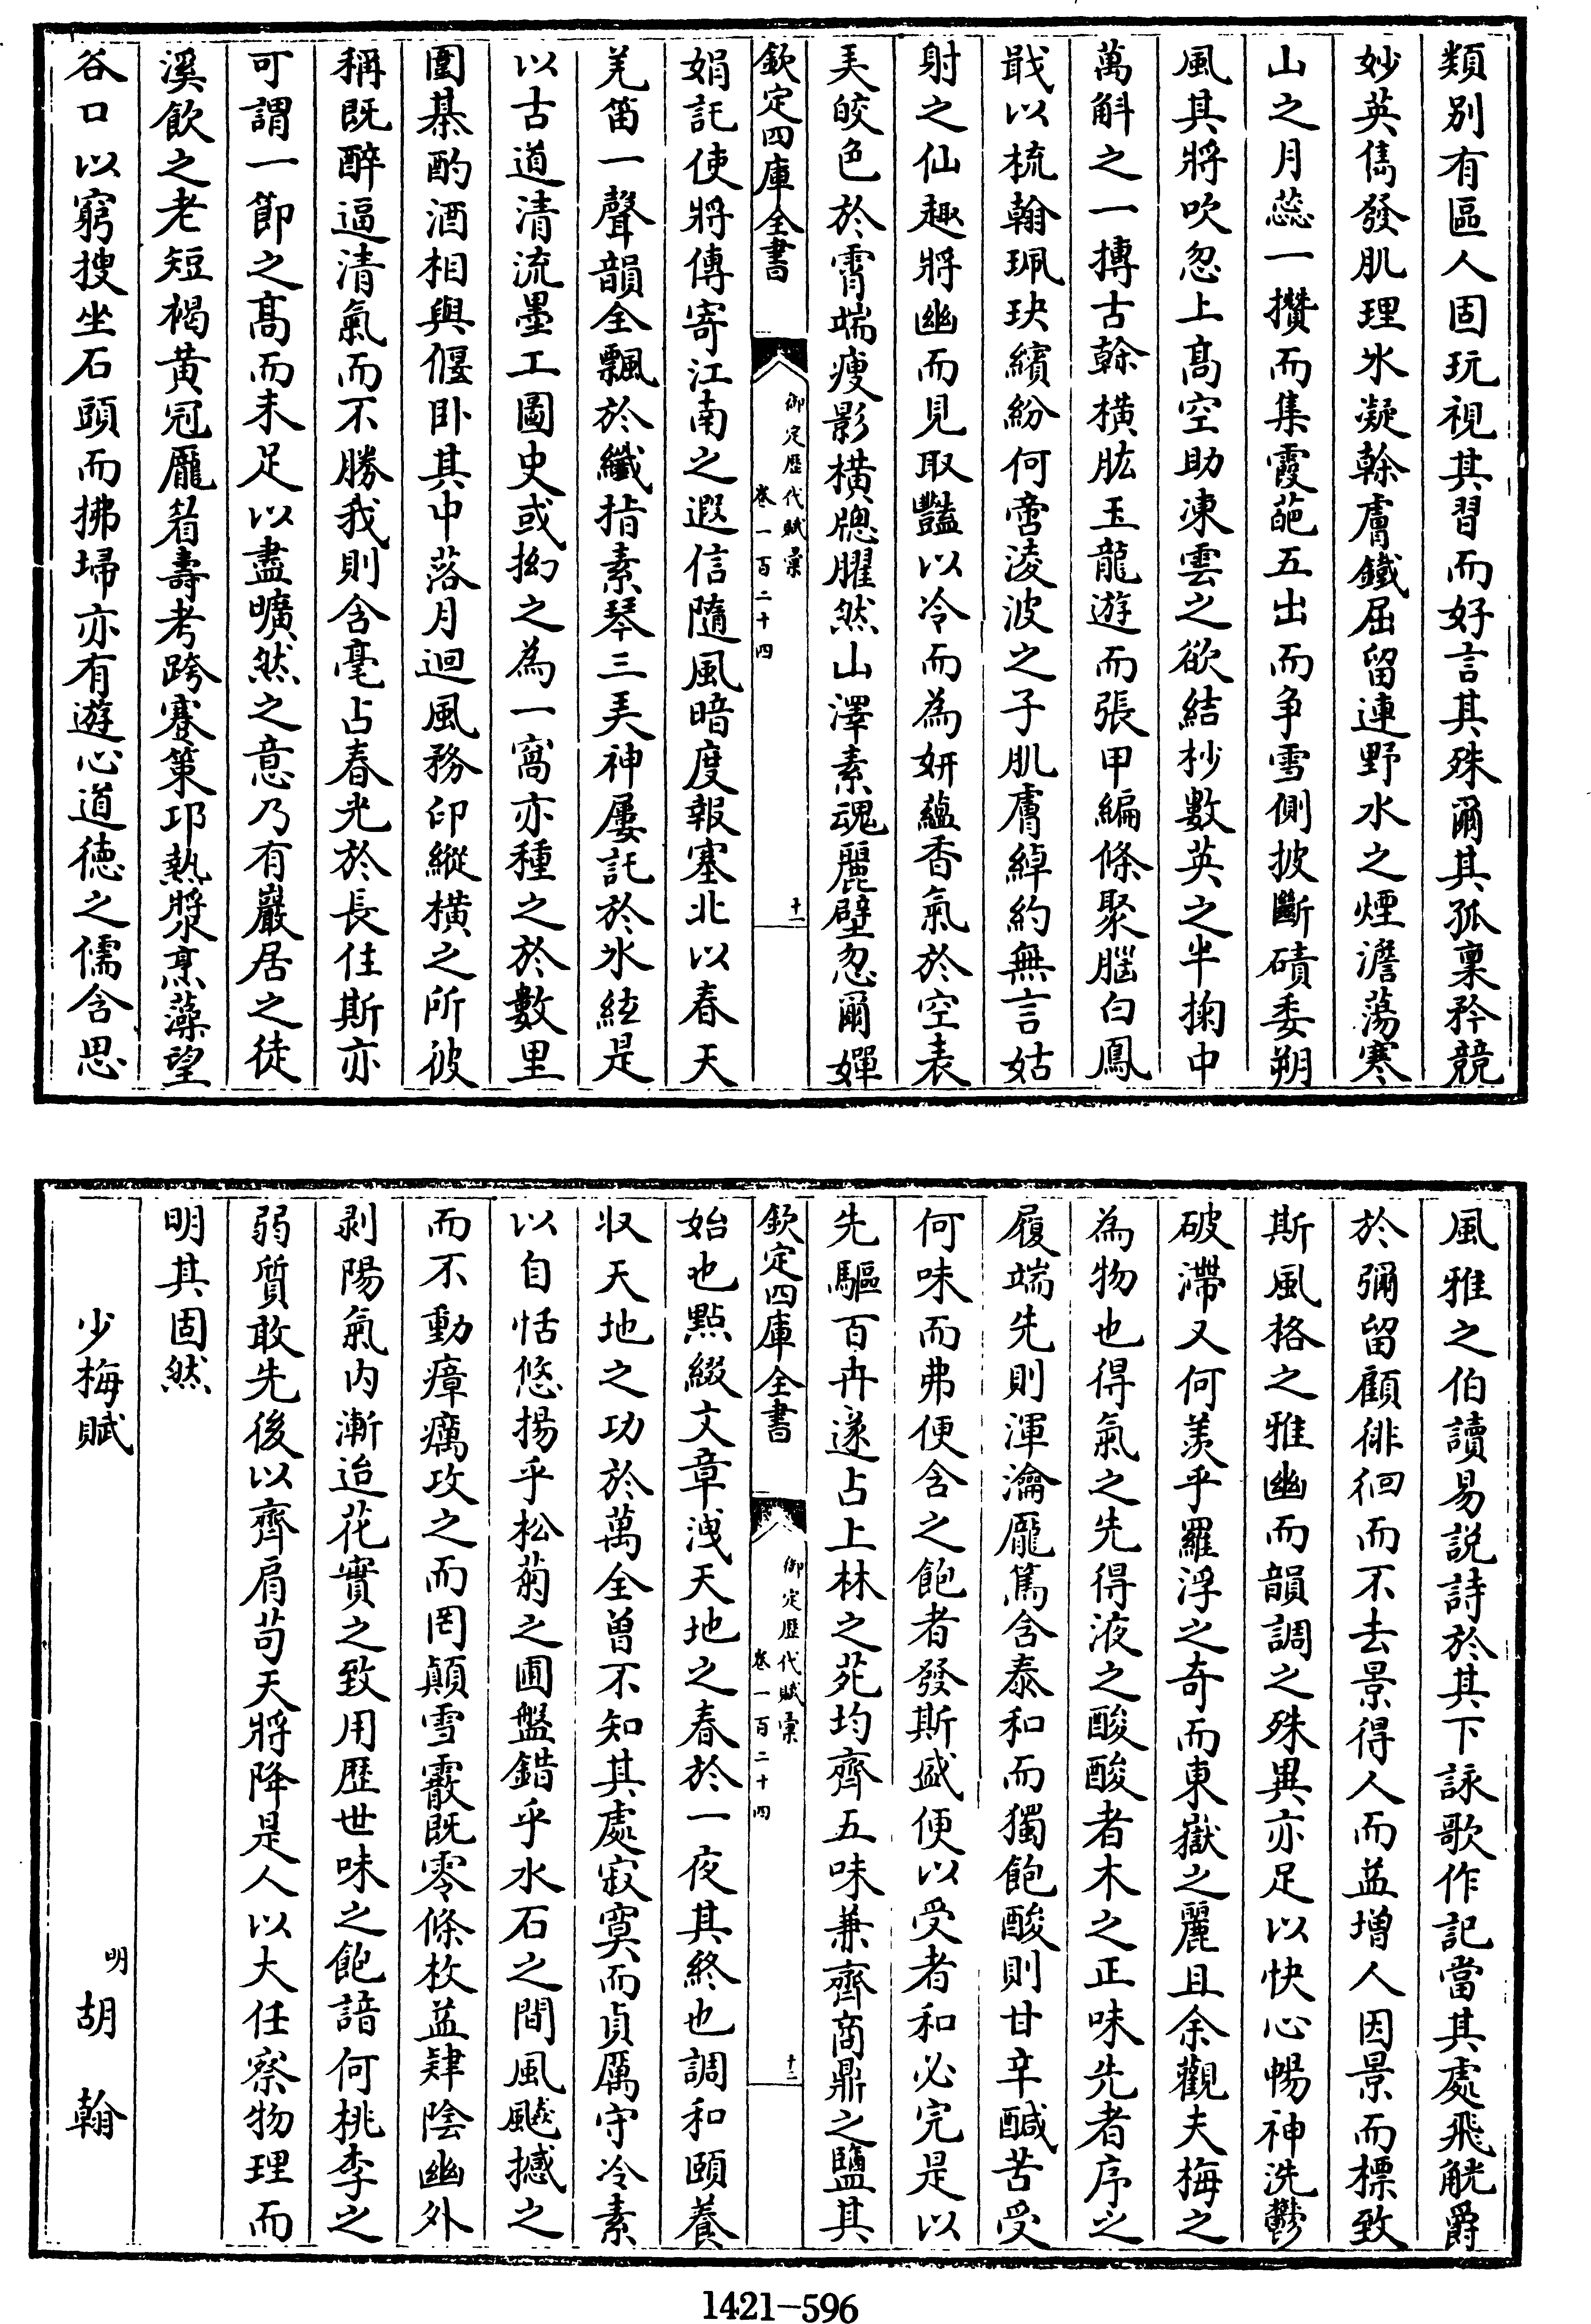 類别有區人固玩視其習而好言其殊爾其孤稟矜競
妙英儁發肌理氷凝榦膚鐵屈留連野水之煙澹蕩寒
山之月蕊一攢而集霞葩五出而争雪側披斷磧委朔
風其將吹忽上髙空助凍雲之欲結杪數英之半掬中
萬斛之一摶古榦横肱玉龍遊而張甲編條聚腦白鳳
戢以梳翰珮玦繽紛何啻淩波之子肌膚綽約無言姑
射之仙趣將幽而見取豔以冷而為妍蘊香氣於空表
美皎色於霄端痩影横牕臞然山澤素魂麗壁忽爾嬋
欽定四庫全書
御定歴代賦彚
卷一百二十四
十一
娟託使將傳寄江南之遐信隨風暗度報塞北以春天
羌笛一聲韻全飄於纎指素琴三美神屢託於氷絃是
以古道清流墨工圖史或拗之為一窩亦種之於數里
圍棊酌酒相與偃卧其中落月迴風務印縱横之所彼
稱既醉逼清氣而不勝我則含毫占春光於長住斯亦
可謂一節之髙而未足以盡曠然之意乃有巖居之徒
溪飲之老短褐黄冠厖眉壽考跨蹇策邛熱漿烹藻望
谷口以窮搜坐石頭而拂埽亦有遊心道德之儒含思
風雅之伯讀易説詩於其下詠歌作記當其處飛觥爵
於彌留顧徘徊而不去景得人而益增人因景而標致
斯風格之雅幽而韻調之殊異亦足以快心暢神洗鬱
破滯又何羨乎羅浮之奇而東嶽之麗且余觀夫梅之
為物也得氣之先得液之酸酸者木之正味先者序之
履端先則渾瀹厖篤含泰和而獨飽酸則甘辛醎苦受
何味而弗便含之飽者發斯盛便以受者和必完是以
先驅百卉遂占上林之苑均齊五味兼齊商鼎之鹽其
欽定四庫全書
御定歴代賦彚
卷一百二十四
十二
始也點綴文章洩天地之春於一夜其終也調和頤養
収天地之功於萬全曽不知其處寂寞而貞厲守冷素
以自恬悠揚乎松菊之圃盤錯乎水石之間風颭撼之
而不動瘴癘攻之而罔顛雪霰既零條枚益肄陰幽外
剥陽氣内漸迨花實之致用歴世味之飽諳何桃李之
弱質敢先後以齊肩苟天將降是人以大任察物理而
明其固然
少梅賦
明 胡翰
1421-596